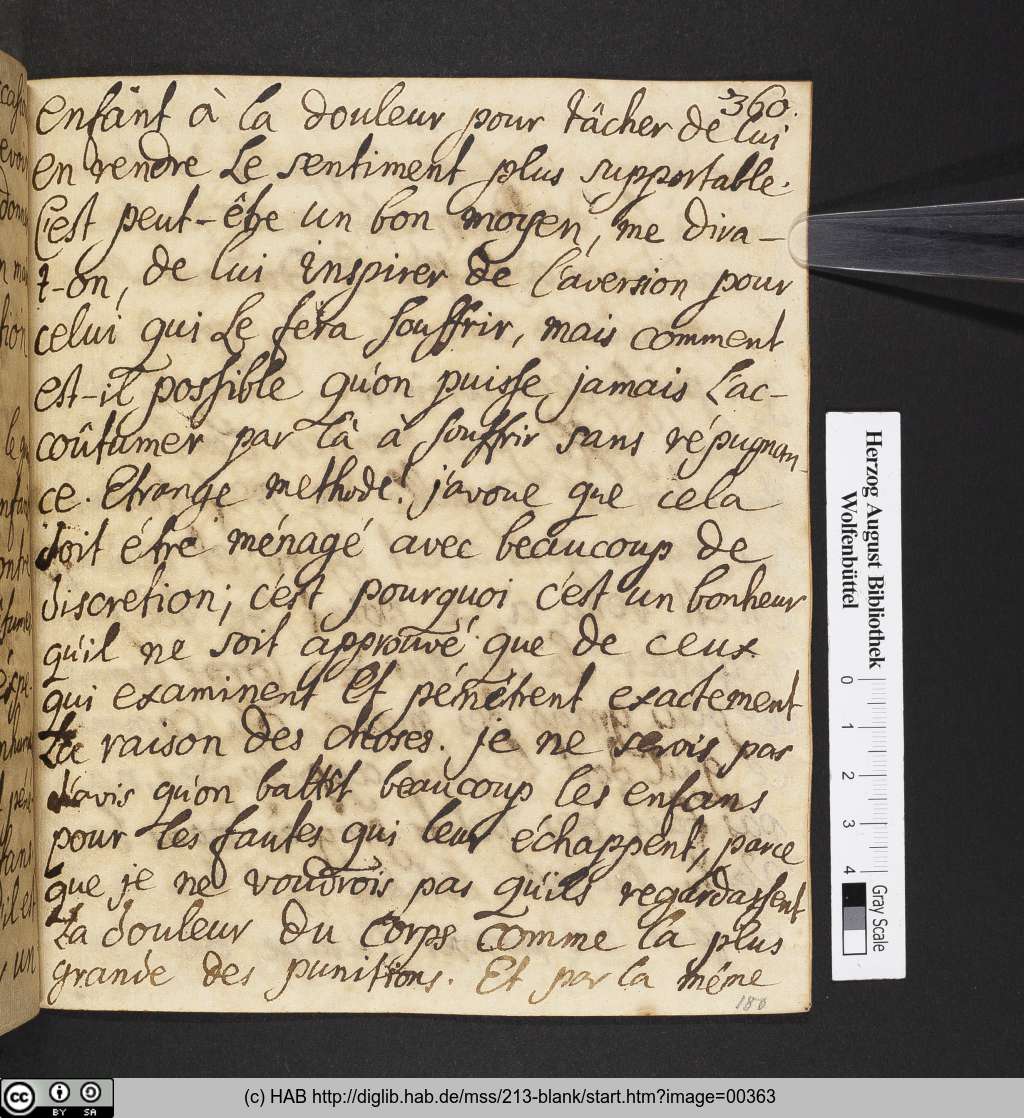 360.
enfant à la douleur pour tâcher de lui
en rendre le sentiment plus supportable.
C'est peut-être un bon moyen, me dira-
t-on, de lui inspirer de l'aversion pour
celui qui le fera souffrir, mais comment
est-il possible qu'on puisse jamais l'ac-
coûtumer par là à souffrir sans répugnan-
ce. Etrange methode! j'avoue que cela
doit étre ménagé avec beaucoup de
discretion; c'est pourquoi c'est un bonheur
qu'il ne soit approuvé que de ceux
qui examinent et pénétrent exactement
la raison des choses. je ne serois pas
d'avis qu'on battit beaucoup les enfans
pour les fautes qui leur échappent, parce
que je ne voudrois pas qu'ils regardassent
la douleur du corps comme la plus
grande des punitions. Et par la même
180
Herzog August Bibliothek
Wolfenbüttel
0 1 2 3 4
Gray Scale
cc BY SA
(c) HAB http://diglib.hab.de/mss/213-blank/start.htm?image=00363